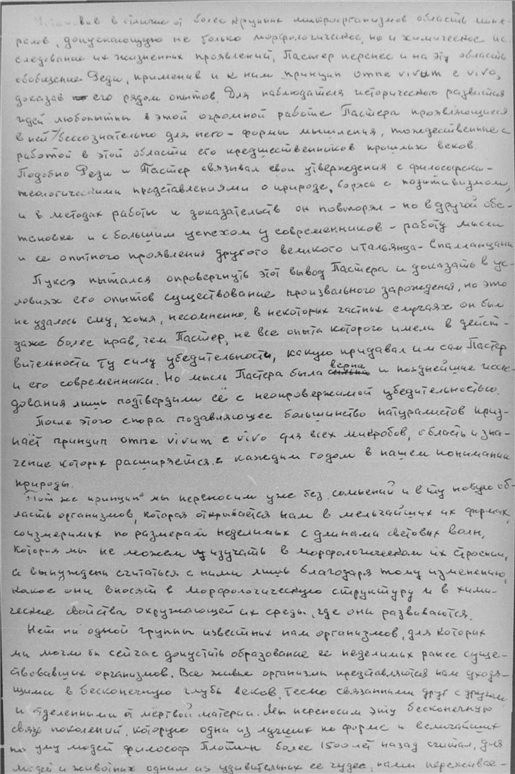 Установив в отличие от более крупных микроорганизмов область мине-
ралов, допускающую не только морфологическое, но и химическое ис-
следование их жизненных проявлений, Пастер перенес и на эту область
обобщение Реди, применив и к ним принцип omne vivum e vivo,
доказав его рядом опытов. Для наблюдателя исторического развития
идей любопытны в этой огромной работе Пастера проявляющиеся
в ней бессознательно для него - формы мышления, тождественные с
работой в этой области его предшественников прошлых веков.
Подобно Реди и Пастер связывал свои утверждения с философски-
теологическими представлениями о природе, борясь с позитивизмом,
и в методах работы и доказательств он повторял - но в другой обс-
тановке и с большим успехом у современников - работу мысли
и ее опытного проявления другого великого итальянца - Спалланцани.
Пуше пытался опровергнуть этот вывод Пастера и доказать в ус-
ловиях его опытов существование произвольного зарождения, но это
не удалось ему, хотя, несомненно, в некоторых частных случаях он был
даже более прав, чем Пастер, не все опыта которого имели в дейст-
вительности ту силу убедительности, какую придавал им сам Пастер
и его современники. Но мысль Пастера была верна и позднейшие иссле-
дования лишь подтвердили её с неопровержимой убедительностью.
После этого спора подавляющее большинство натуралистов приз-
наёт принцип omne vivum e vivo для всех микробов, область и зна-
чение которых расширяется с каждым годом в нашем понимании
природы.
Этот же принцип мы переносим уже без сомнений и в ту новую об-
ласть организмов, которая открывается нам в мельчайших их формах,
соизмеримых по размерам неделимых с длинами световых волн,
которых мы не можем изучать в морфологическом их строении,
а вынуждены считаться с ними лишь благодаря тому изменению,
какое они вносят в морфологическую структуру и в хими-
ческие свойства окружающей их среды, где они развиваются.
Нет ни одной группы известных нам организмов, для которых
мы могли бы сейчас допустить образование ее неделимых ранее суще-
ствовавших организмов. Все живые организмы представляются нам уходя-
щими в бесконечную глубь веков, тесно связанными друг с другом
и отделенными от мертвой материи. Мы переносим эту бесконечную
связь поколений, которую один из лучших по форме и величайших
по уму людей философ Плотин более 1500 лет назад считал, для
людей и животных одним из удивительных ее чудес, нами переживае-